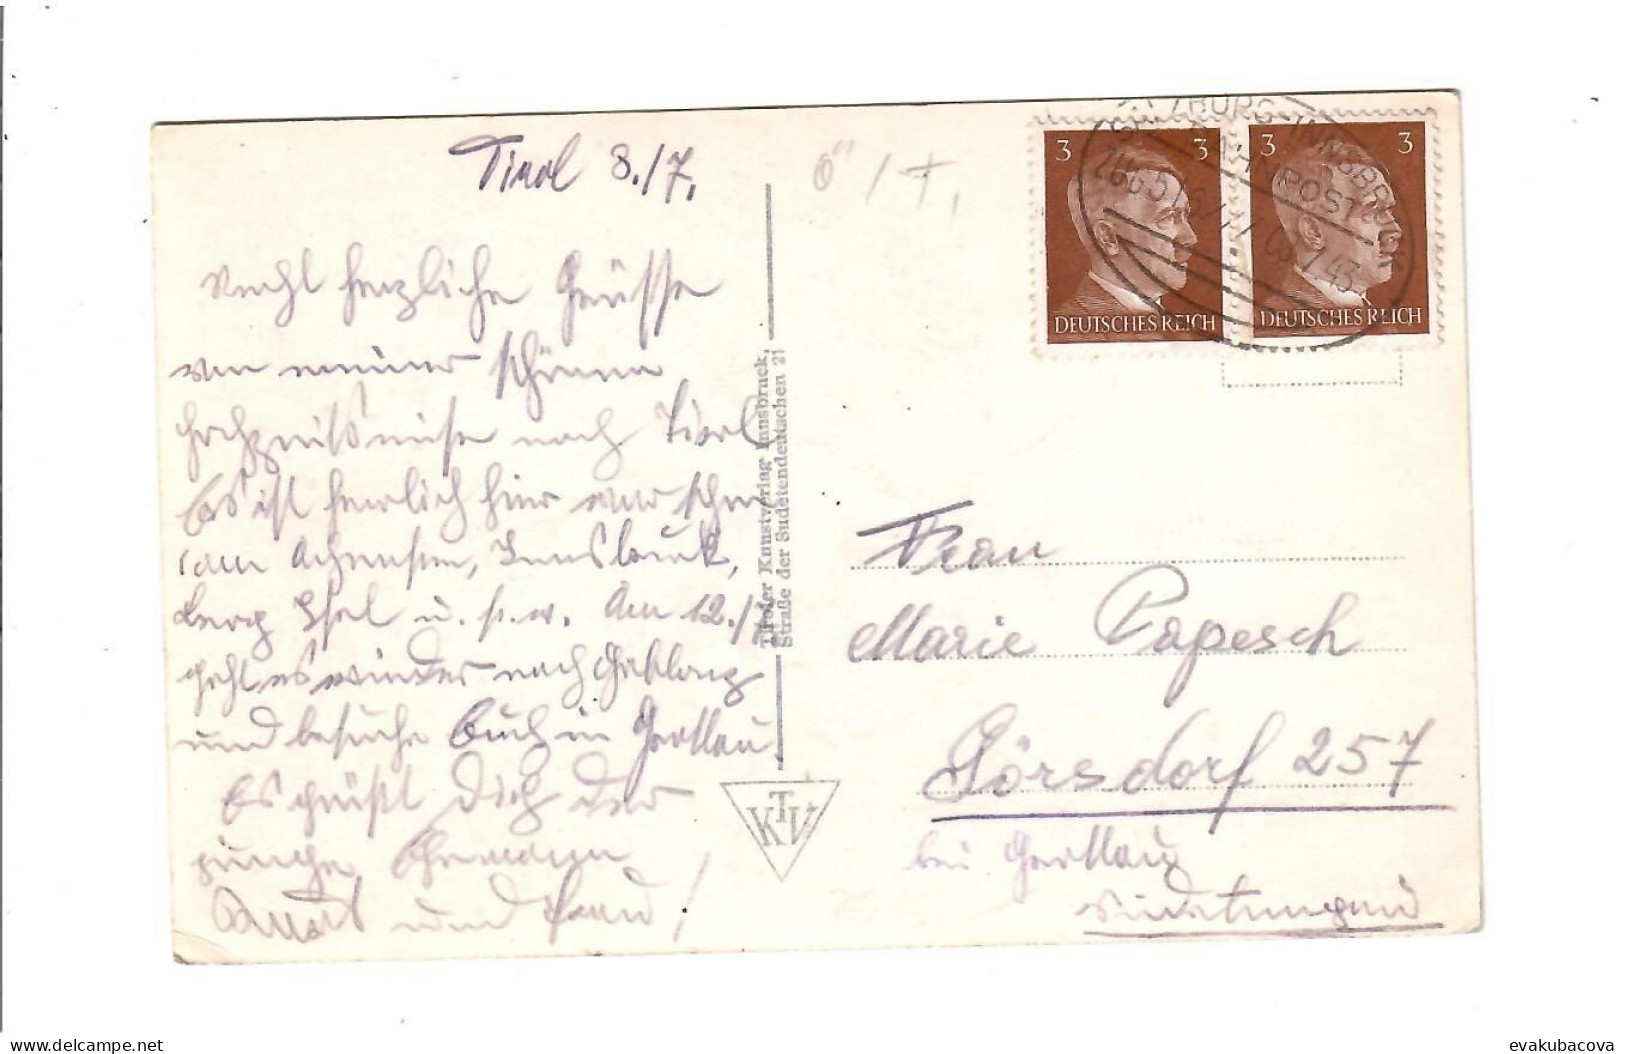 Tirol 8./7.
Recht herzliche Grüsse
von meiner schönen
Hochzeitsreise nach Tirol
Es ist herrlich hier war schon
am Achensee, Innsbruck,
Berg Isel u. s. w. Am 12./7.
geht es wieder nach Gablonz
und besuche Euch in Grottau.
Es grüßt Dich der
junge Ehemann
und Frau!
Ö / T.
Tiroler Kunstverlag Innsbruck,
Straße der Sudetendeutschen 21
KTV
3 3
DEUTSCHES REICH
3 3
DEUTSCHES REICH
SALZBURG-INNSBRUCK
BAHNPOST
7.43
Frau
Marie Papesch
Görsdorf 257
bei Grottau
Sudetengau
evakubacova
delcampe.net